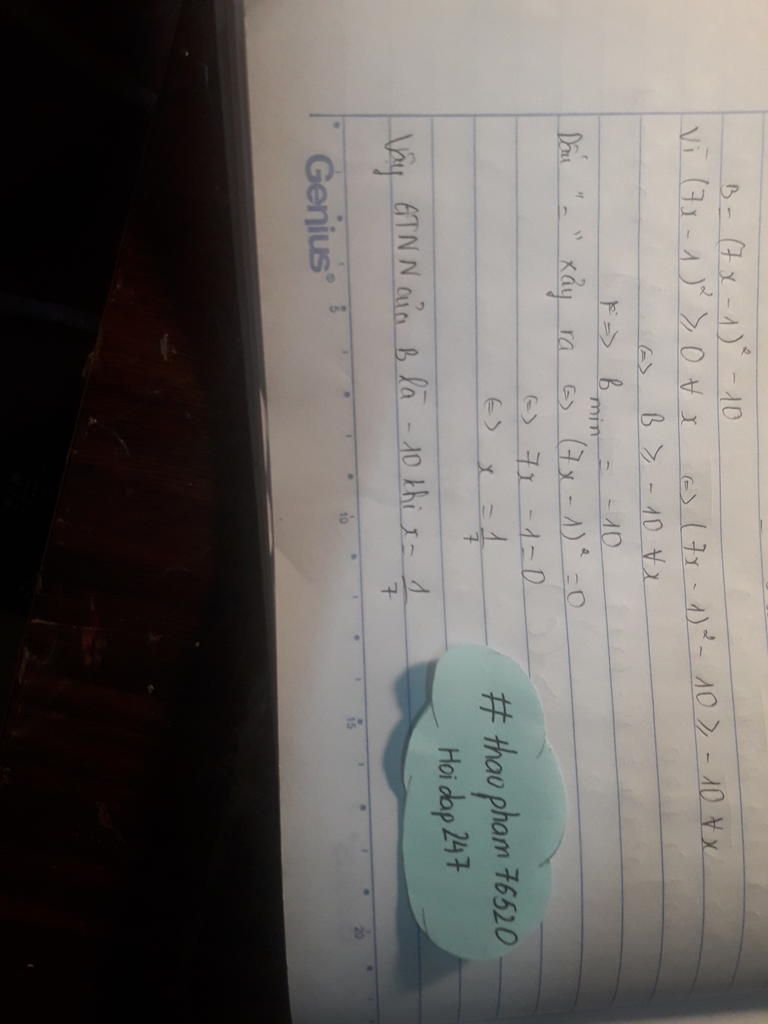 B = (7x - 1)² - 10
Vì (7x - 1)² ≥ 0 ∀ x (=) (7x - 1)² - 10 ≥ - 10 ∀ x
(=) B ≥ - 10 ∀ x
=> B min = - 10
Dấu "=" xảy ra (=) (7x - 1)² = 0
(=) 7x - 1 = 0
(=) x = 1/7
Vậy GTNN của B là - 10 khi x = 1/7
# thao pham 76520
Hoi dap 247
Genius®
5 10 15 20